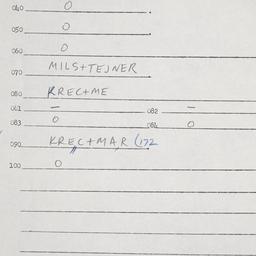 040 0
050 0
060 0
070 MILS+TEJNER
080 KREC+ME
081 — 082 —
083 0 084 0
090 KREC+MAR (172
100 0